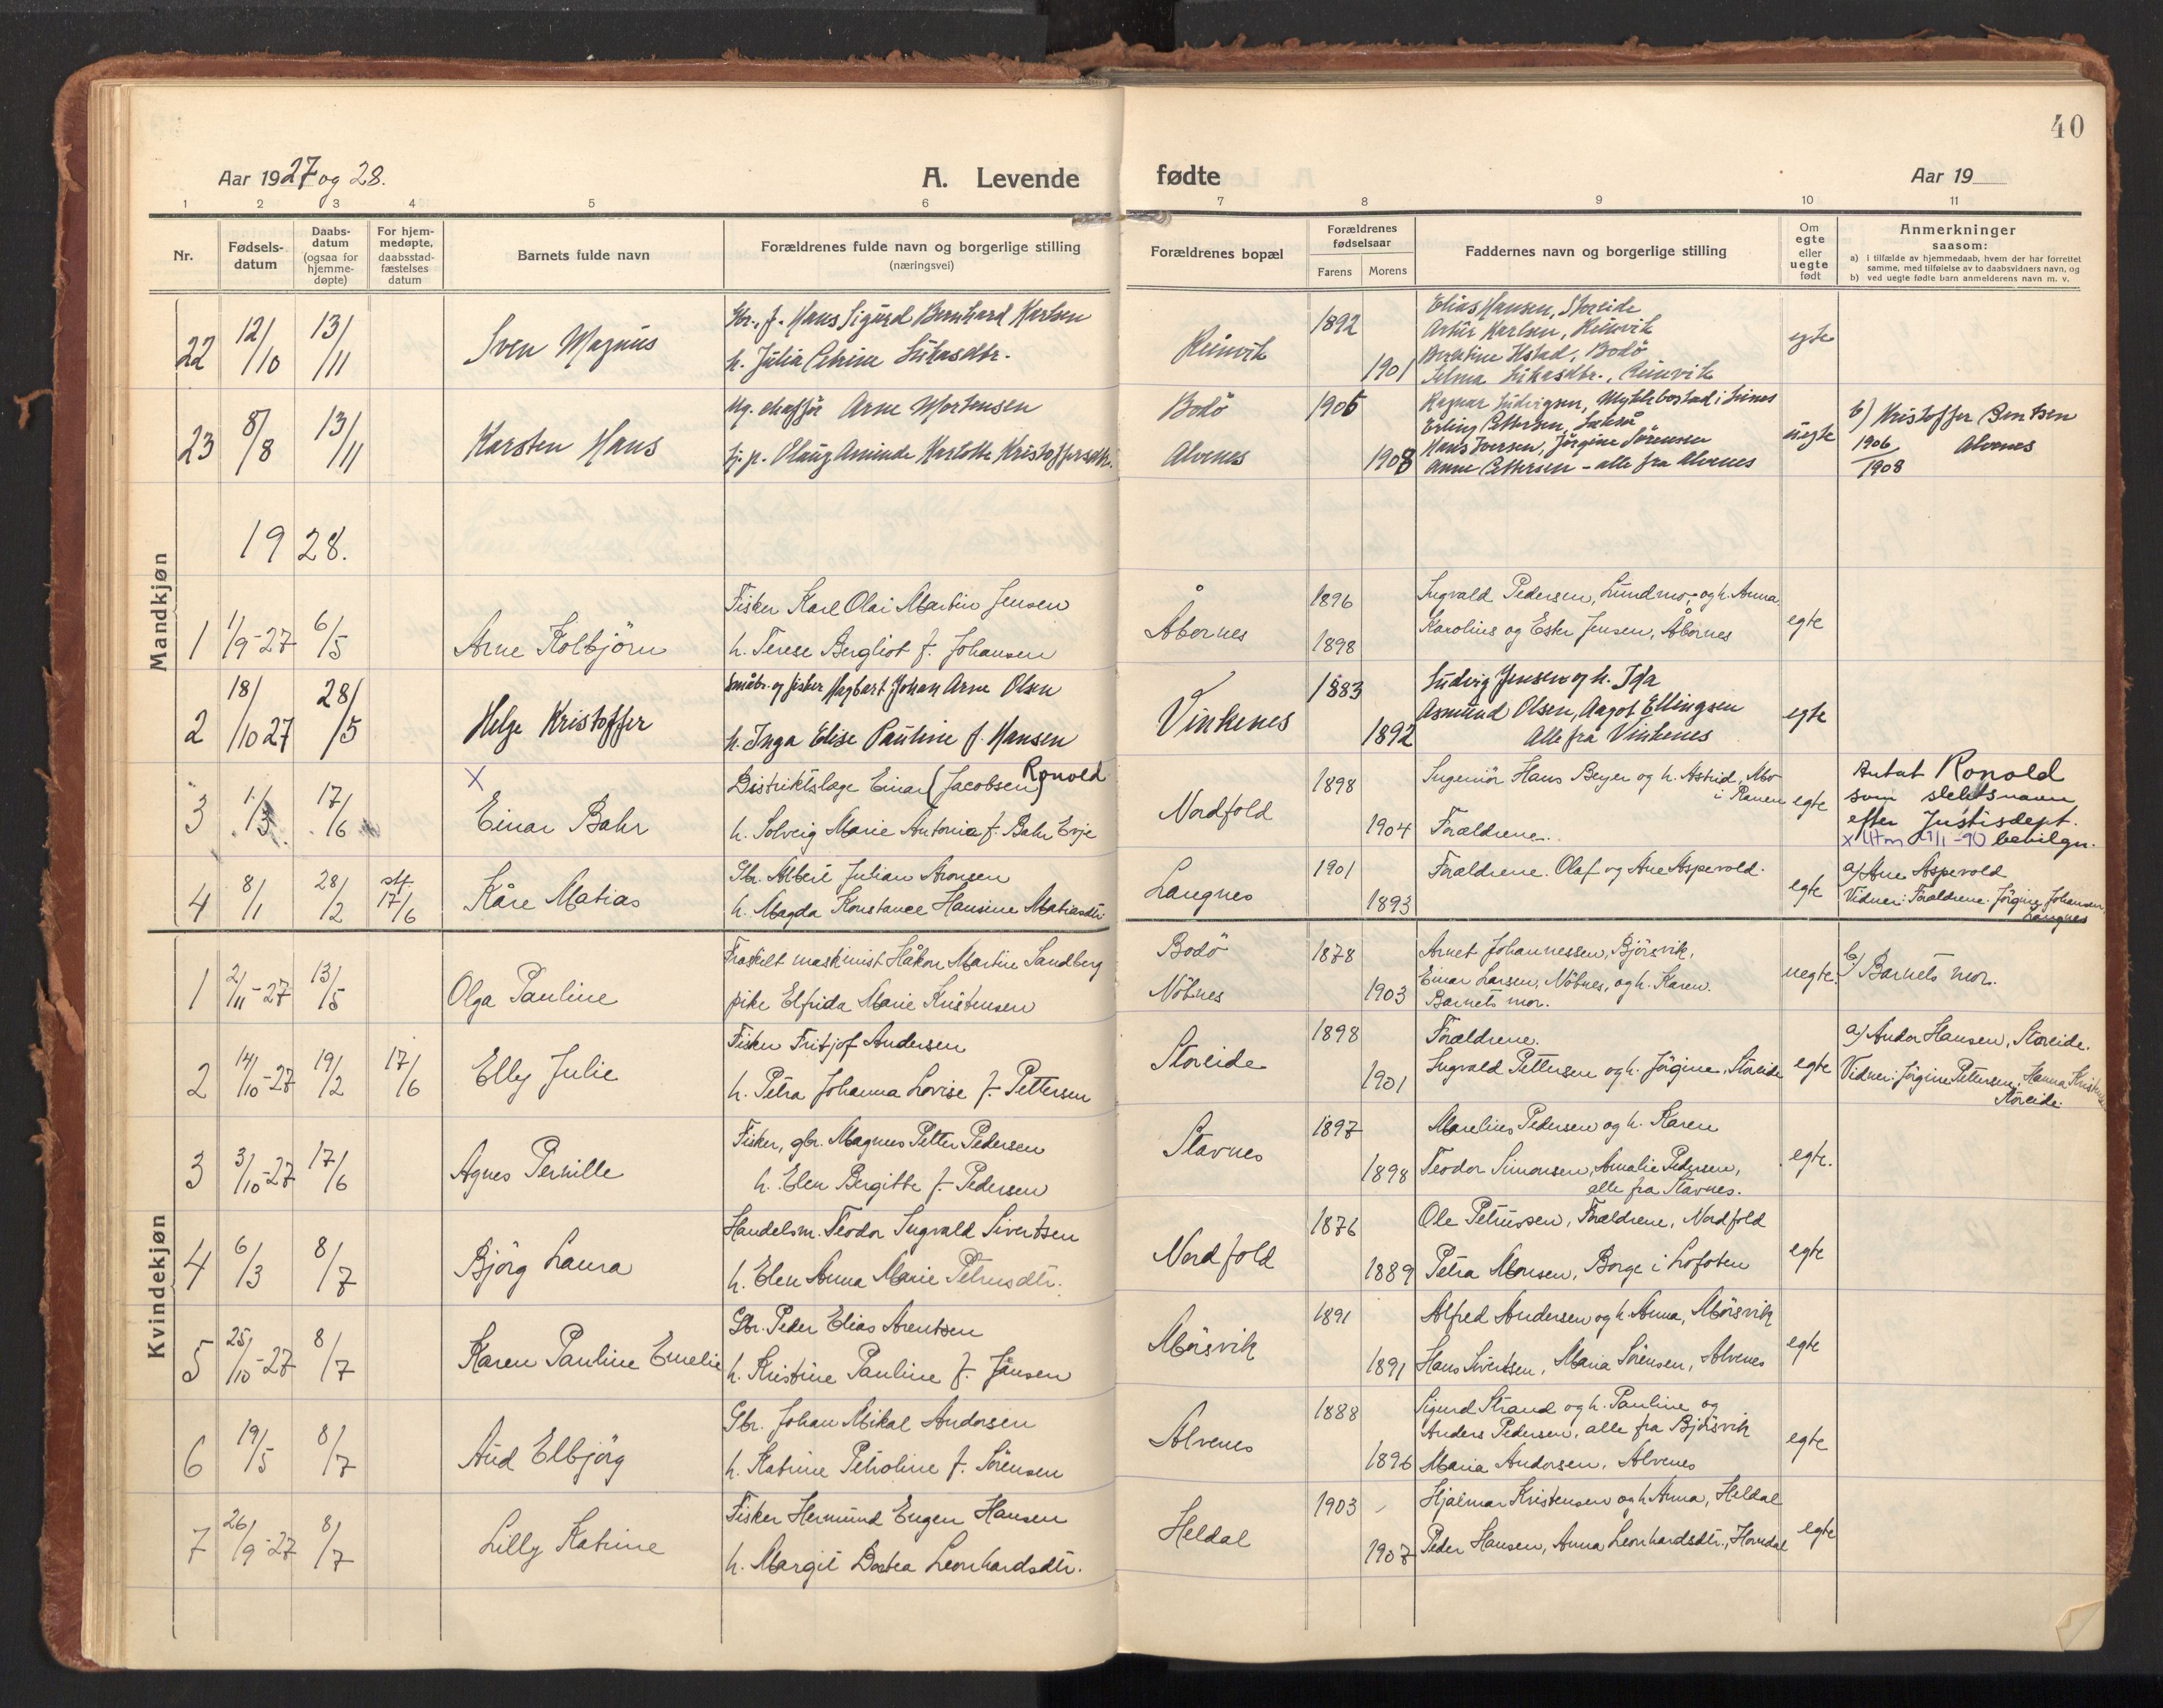 40
Aar 1927 og 28.
A. Levende fødte
Aar 19
1 2 3 4 5 6 7 8 9 10 11
Nr.
Fødsels-
datum
Daabs-
datum
(ogsaa for
hjemme-
døpte)
For hjem-
medøpte,
daabsstad-
fæstelses
datum
Barnets fulde navn
Forældrenes fulde navn og borgerlige stilling
(næringsvei)
Forældrenes bopæl
Forældrenes
fødselsaar
Farens Morens
Faddernes navn og borgerlige stilling
Om
egte
eller
uegte
født
Anmerkninger
saasom:
a) i tilfælde av hjemmedaab, hvem der har forrettet
samme, med tilføielse av to daabsvidners navn, og
b) ved uegte fødte barn anmelderens navn m. v.
Mandkjøn
22 12/10 13/11 Sven Magnus
Hans Sigurd Bernhard Karlsen
h. Julia Petrine Lukasdtr.
1892
1901
Elias Hansen, Storeide
Artur Karlsen,
Bodö
Selma Lukasdtr.,
egte
23 8/8 13/11 Karsten Hans
Ug. chafför Arne Mortensen
Olaug Aminda Karlotte Kristoffersdtr.
Bodö
Alvenes
1905
1908
Ragnar Ludvigsen,
Erling Pettersen,
Hans Iversen, Jörgine Sörensen
Anne Pettersen - alle fra Alvenes
uegte
b) Kristoffer Bentsen
1906 Alvenes
1908
1928.
1 1/9-27 6/5 Arne Kolbjörn
Fisker Karl Olai Martin Jensen
h. Terese Bergliot f. Johansen
Åbornes
1896
1898
Ingvald Pedersen, Lundmo, og h. Anna
Karolius og Ester Jensen, Åbornes
egte
2 18/10 27 28/5 Helge Kristoffer
Småbr. og fisker Hagbart Johan Arne Olsen
h. Inga Elise Pauline f. Hansen
Vinkenes
1883
1892
Ludvig Jensen og h.
Asmund Olsen, Aagot Ellingsen
Alle fra Vinkenes
egte
3 1/3 17/6 X Einar Bahr
Distriktslæge Einar (Jacobsen) Ronold
h. Solveig Marie Antonie f. Bahr Evje
Nordfold
1898
1904
Ingeniör Hans Beyer og h. Astrid, Mo
i Ranen
Forældrene.
egte
Antat Ronold
som slektsnavn
efter Justisdept.
bevilgn.
4 8/1 28/2 stf. 17/6 Kåre Matias
Gbr. Albert Julian Aronsen
h. Magda Konstance Hansine Matiasdtr.
Langnes
1901
1893
Forældrene. Olaf og Ane Aspevold.
egte
a) Ane Aspevold
Vidner: Forældrene. Jörgine Johansen,
Langnes
Kvindekjøn
1 2/11-27 13/5 Olga Pauline
Fraskilt maskinist Håkon Martin Sandberg
pike Elfrida Marie Kristensen
Bodö
Nöbnes
1878
1903
Arnet Johannessen, Björsvik,
Einar Larsen, Nöbnes, og h. Karen.
Barnets mor.
uegte.
b) Barnets mor.
2 14/10-27 19/2 17/6 Elly Julie
Fisker Fritjof Andersen
h. Petra Johanna Lovise f. Pettersen
Storeide
1898
1901
Forældrene.
Ingvald Pettersen og h. Jörgine, Storeide
egte
a) Andor Hansen, Storeide.
Vidner: Jörgine Pettersen, Hanna
Storeide.
3 3/10-27 17/6 Agnes Pernille
Fisker, gbr. Magnus Petter Pedersen
h. Elen Bergitte f. Pedersen
Stavnes
1897
1898
Marelius Pedersen og h. Karen
Teodor Simonsen, Amalie Pedersen,
alle fra Stavnes.
egte.
4 6/3 8/7 Björg Laura
Handelsm. Teodor Ingvald Sivertsen
h. Elen Anna Marie Petrusdtr.
Nordfold
1876
1889
Ole Petrussen, Forældrene, Nordfold
Petra Monsen, Borge i Lofoten
egte
5 25/10-27 8/7 Karen Pauline Emelie
Gbr. Peder Elias Arentsen
h. Kristine Pauline f. Jensen
Mörsvik
1891
1891
Alfred Andersen og h. Anna, Mörsvik
Hans Sivertsen, Maria Sörensen, Alvenes
egte
6 19/5 8/7 Aud Elbjörg
Gbr. Johan Mikal Andersen
h. Katrine Petroline f. Sörensen
Alvenes
1888
1896
Sigurd Strand og h. Pauline og
Anders Pedersen, alle fra Björsvik
Maria Andersen, Alvenes
egte
7 26/9-27 8/7 Lilly Katrine
Fisker Hermund Eugen Hansen
h. Margit Dortea Leonhardsdtr.
Heldal
1903
1907
Hjalmar Kristensen og h. Anna, Heldal
Peder Hansen, Anna Leonhardsdtr.,
egte